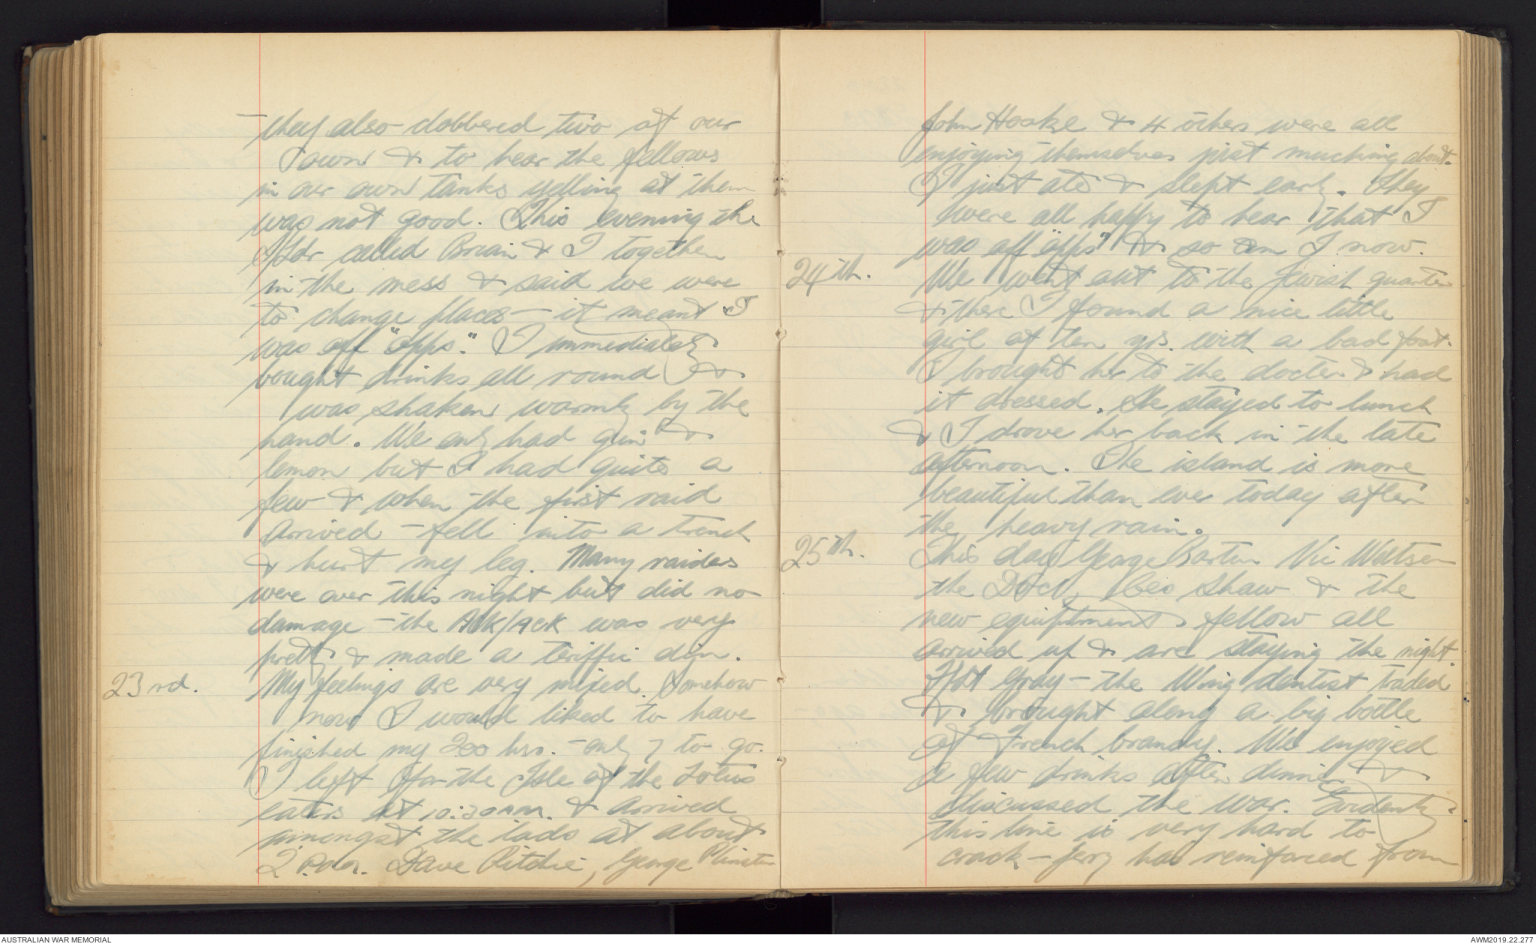 they also clobbered two of our
own & to hear the fellows
in our own tanks yelling at them
was not good. This evening the
called Brian & I together
in the mess & said we were
to change places - it meant I
was off "opps." I immediately
bought drinks all round &
was shaken warmly by the
hand. We only had gin &
lemon but I had quite a
few & when the first raid
arrived - fell into a trench
& hurt my leg. Many raiders
were over this night but did no
damage - the Ack/Ack was very
pretty & made a teriffic din.
23rd. My feelings are very mixed. Somehow
now I would liked to have
finished my 200 hrs. - only 7 to go.
I left for the Isle of the Lotus
eaters at 10:30 AM. & arrived
amongst the lads at about
2 P.M. Dave Ritchie, George
John & 4 others were all
enjoying themselves just mucking about.
I just ate & slept early. They
were all happy to hear that I
was off "opps" & so am I now.
24th. We went out to the Jewish quarter
& there I found a nice little
girl of ten yrs. with a bad foot.
I brought her to the doctor & had
it dressed. She stayed to lunch
& I drove her back in the late
afternoon. The island is more
beautiful than ever today after
the heavy rain.
25th. This day George Barton Vic Watson
the Doct, Shaw & the
new equiptment fellow all
arrived up & are staying the night
Gray - the Wing dentist traded
& brought along a big bottle
of French brandy. We enjoyed
a few drinks after dinner &
discussed the war. Evidently
this line is very hard to
crack - Jerry has reinforced from
AUSTRALIAN WAR MEMORIAL
AWM2019.22.277